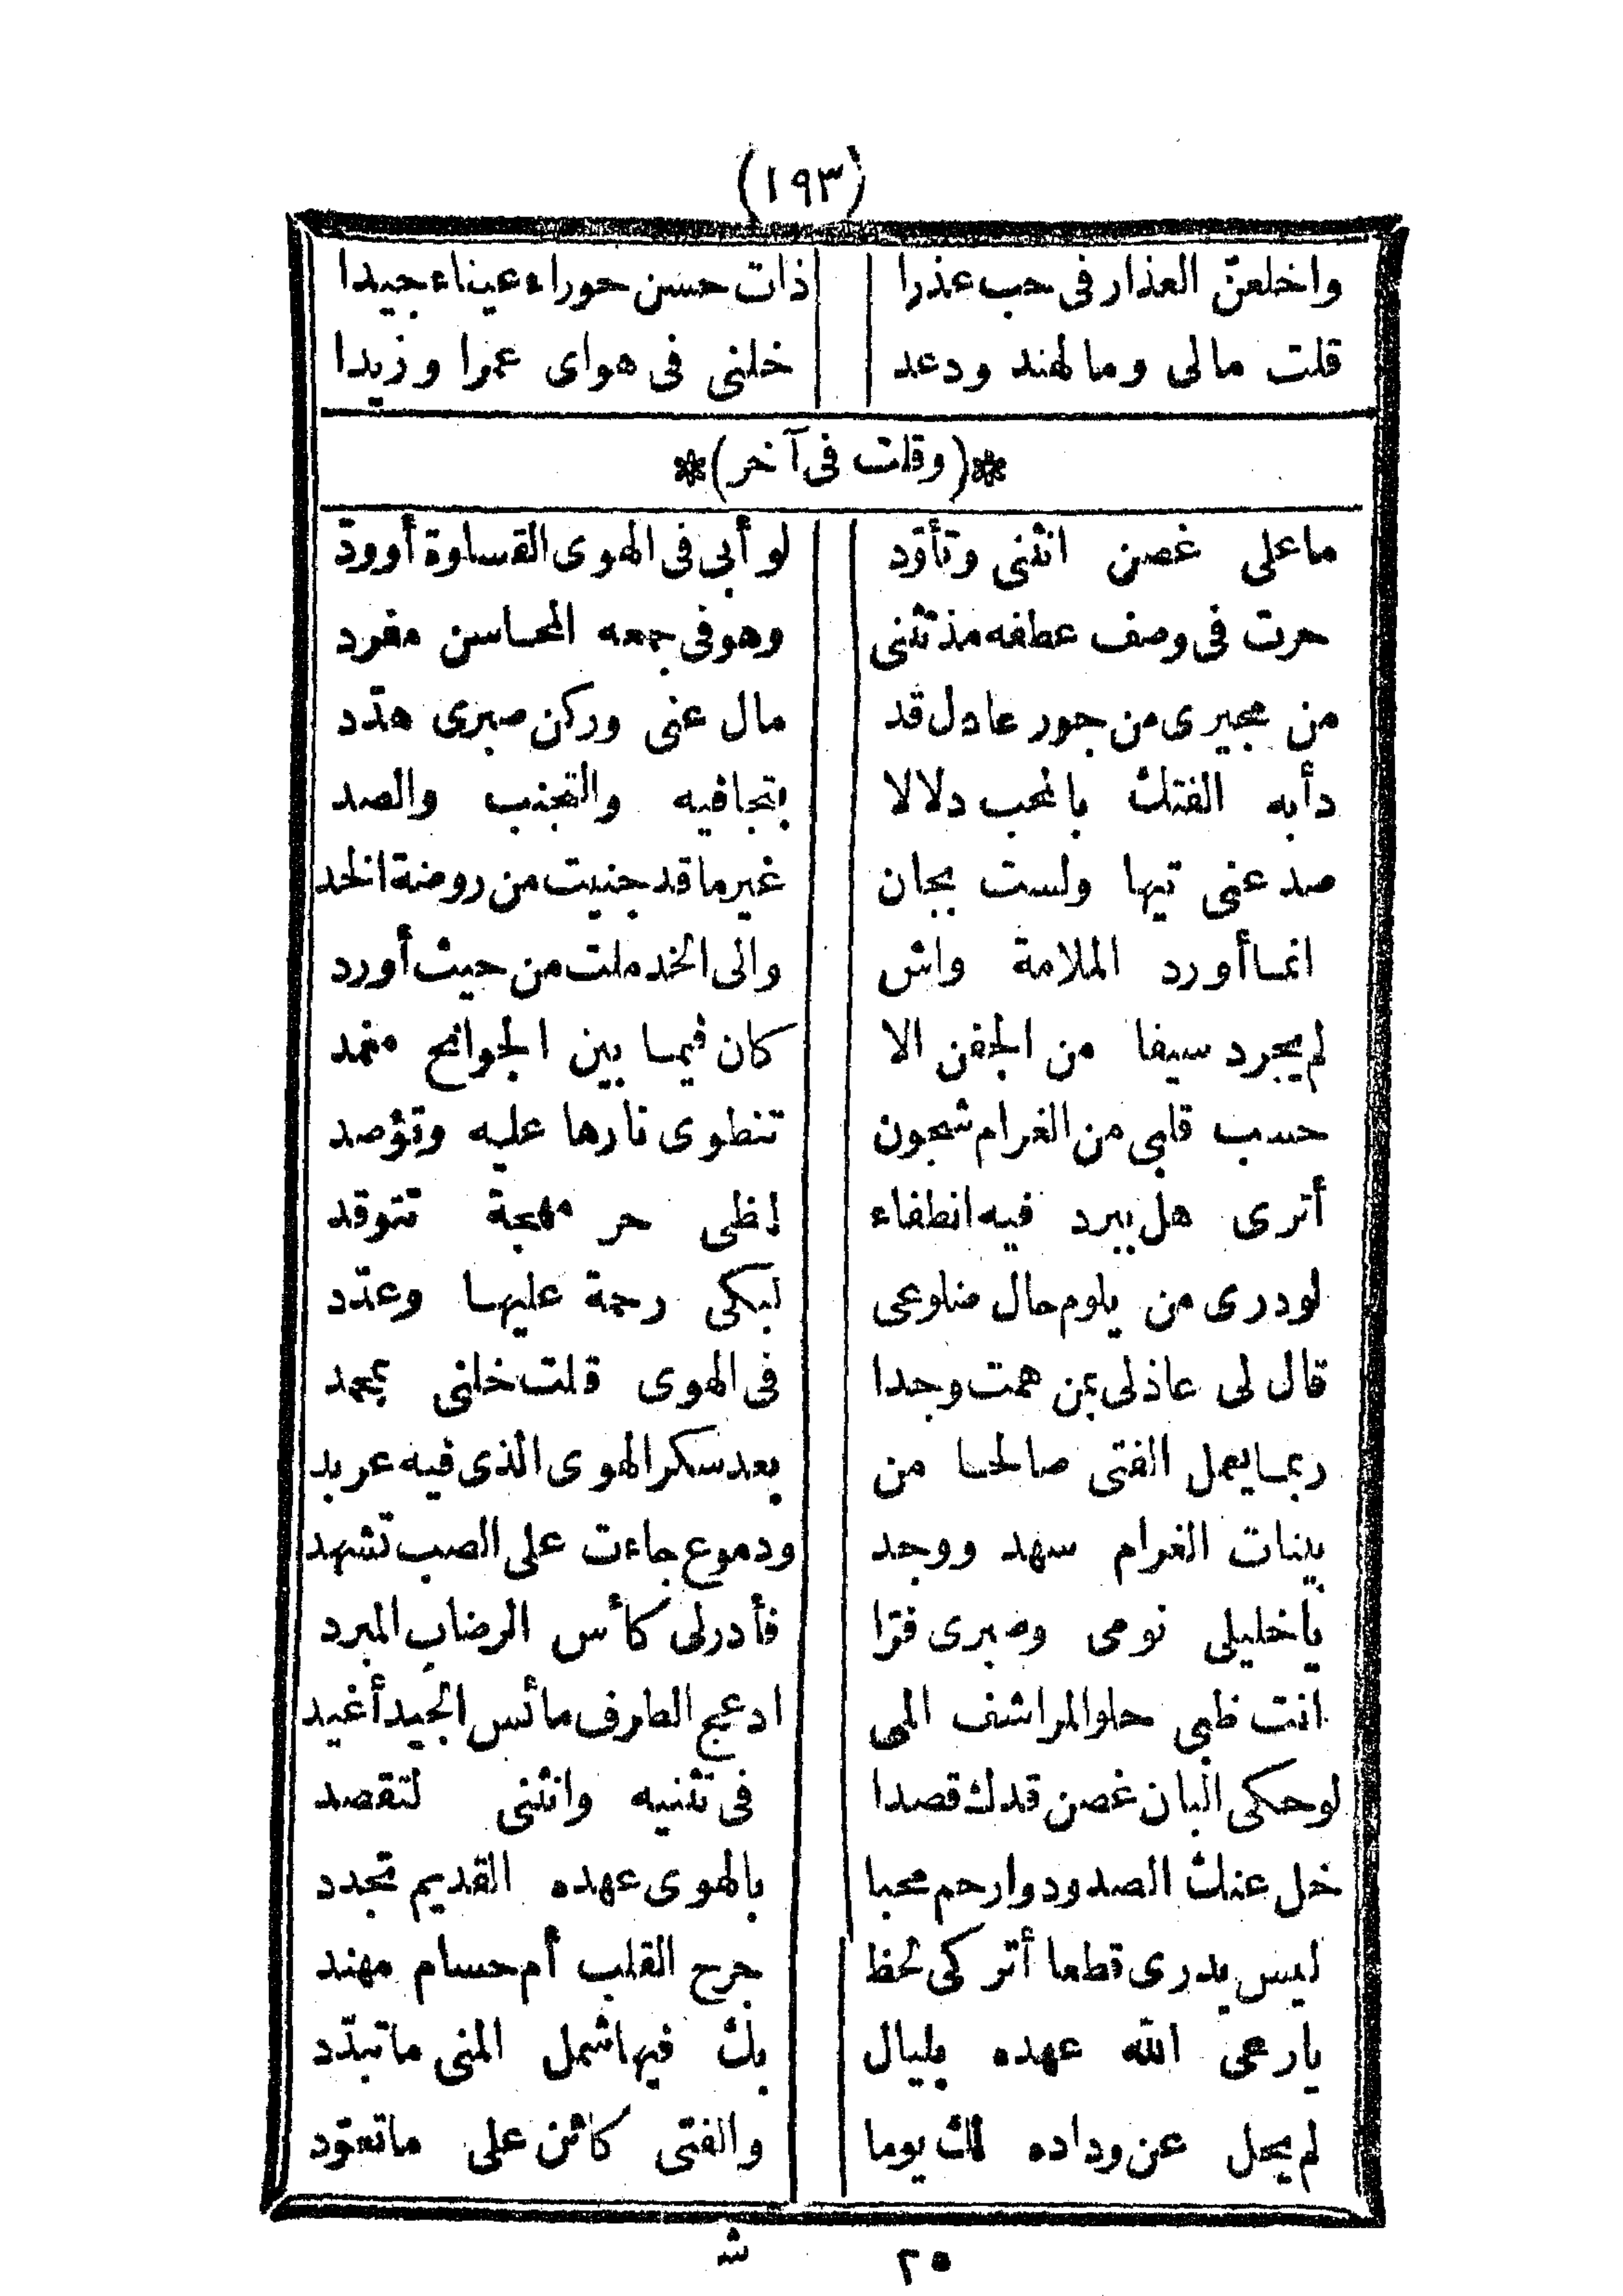 (١٩٣)
واخلعنّ العذار فى حب عذرا ذات حسن حوراء عيناء جيدا
قلت مالى وما لهند ودعد خلنى فى هواى عمرا وزيدا
*(وقلت فى آخر)*
ماعلى غصن انثنى وتأوّد لو أبى فى الهوى القساوة أو ودّ
حرت فى وصف عطفه مذ تثنى وهو فى جمعه المحاسن مفرد
من مجيرى من جور عادل قد مال عنى وركن صبرى هدّد
دأبه الفتك بالمحب دلالا بتجافيه والتجنب والصد
صد عنى تيها ولست بجان غير ما قد جنيت من روضة الخد
انما أورد الملامة واش والى الخد ملت من حيث أورد
لم يجرد سيفا من الجفن الا كان فيما بين الجوانح مغمد
حسب قلبى من الغرام شجون تنطوى نارها عليه وتؤصد
أترى هل يبرد فيه انطفاء لظى حر مهجة تتوقد
لو درى من يلوم حال ضلوعى لبكى رحمة عليها وعدّد
قال لى عاذلى بمن همت وجدا فى الهوى قلت خلنى بمحمد
ربما يعمل الفتى صالحا من بعد سكر الهوى الذى فيه عربد
بينات الغرام سهد ووجد ودموع جاءت على الصب تشهد
يا خليلى نومى وصبرى فرّا فأدر لى كأس الرضاب المبرد
انت ظبى حلو المراشف المى ادعج الطرف مائس الجيد أغيد
لو حكى البان غصن قدك قصدا فى تثنيه وانثنى لتقصد
خل عنك الصدود وارحم محبا بالهوى عهده القديم تجدد
ليس يدرى قطعا أتركى لحظ جرح القلب أم حسام مهند
يا رعى الله عهده بليال بك فيها شمل المنى ما تبدّد
لم يحل عن وداده لك يوما والفتى كائن على ما تعوّد
٢٥ ش